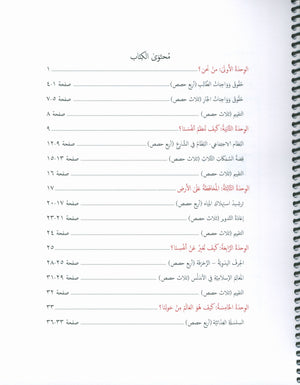 مُحتَوى الكِتاب
الوحدة الأولى: من نحن؟ ١
حقوق وواجبات الطالب (أربع حصص) صفحة ١-٤
حقوق وواجبات الجار (ثلاث حصص) صفحة ٥-٧
التقييم (ثلاث حصص) صفحة ٨
الوحدة الثانية: كيف ننظم أنفسنا؟ ٩
النظام الاجتماعي: النظام في الشارع (أربع حصص) صفحة ٩-١٢
قصة السمكات الثلاث (ثلاث حصص) صفحة ١٣-١٥
التقييم (ثلاث حصص) صفحة ١٦
الوحدة الثالثة: المحافظة على الأرض ١٧
ترشيد استهلاك المياه (أربع حصص) صفحة ١٧-٢٠
إعادة التدوير (ثلاث حصص) صفحة ٢١-٢٣
التقييم (ثلاث حصص) صفحة ٢٤
الوحدة الرابعة: كيف نعبر عن أنفسنا؟ ٢٥
الحرف اليدوية - الزخرفة (أربع حصص) صفحة ٢٥-٢٨
المعالم الإسلامية في الأندلس (ثلاث حصص) صفحة ٢٩-٣١
التقييم (ثلاث حصص) صفحة ٣٢
الوحدة الخامسة: كيف هو العالم من حولنا؟ ٣٣
السلسلة الغذائية (أربع حصص) صفحة ٣٣-٣٦